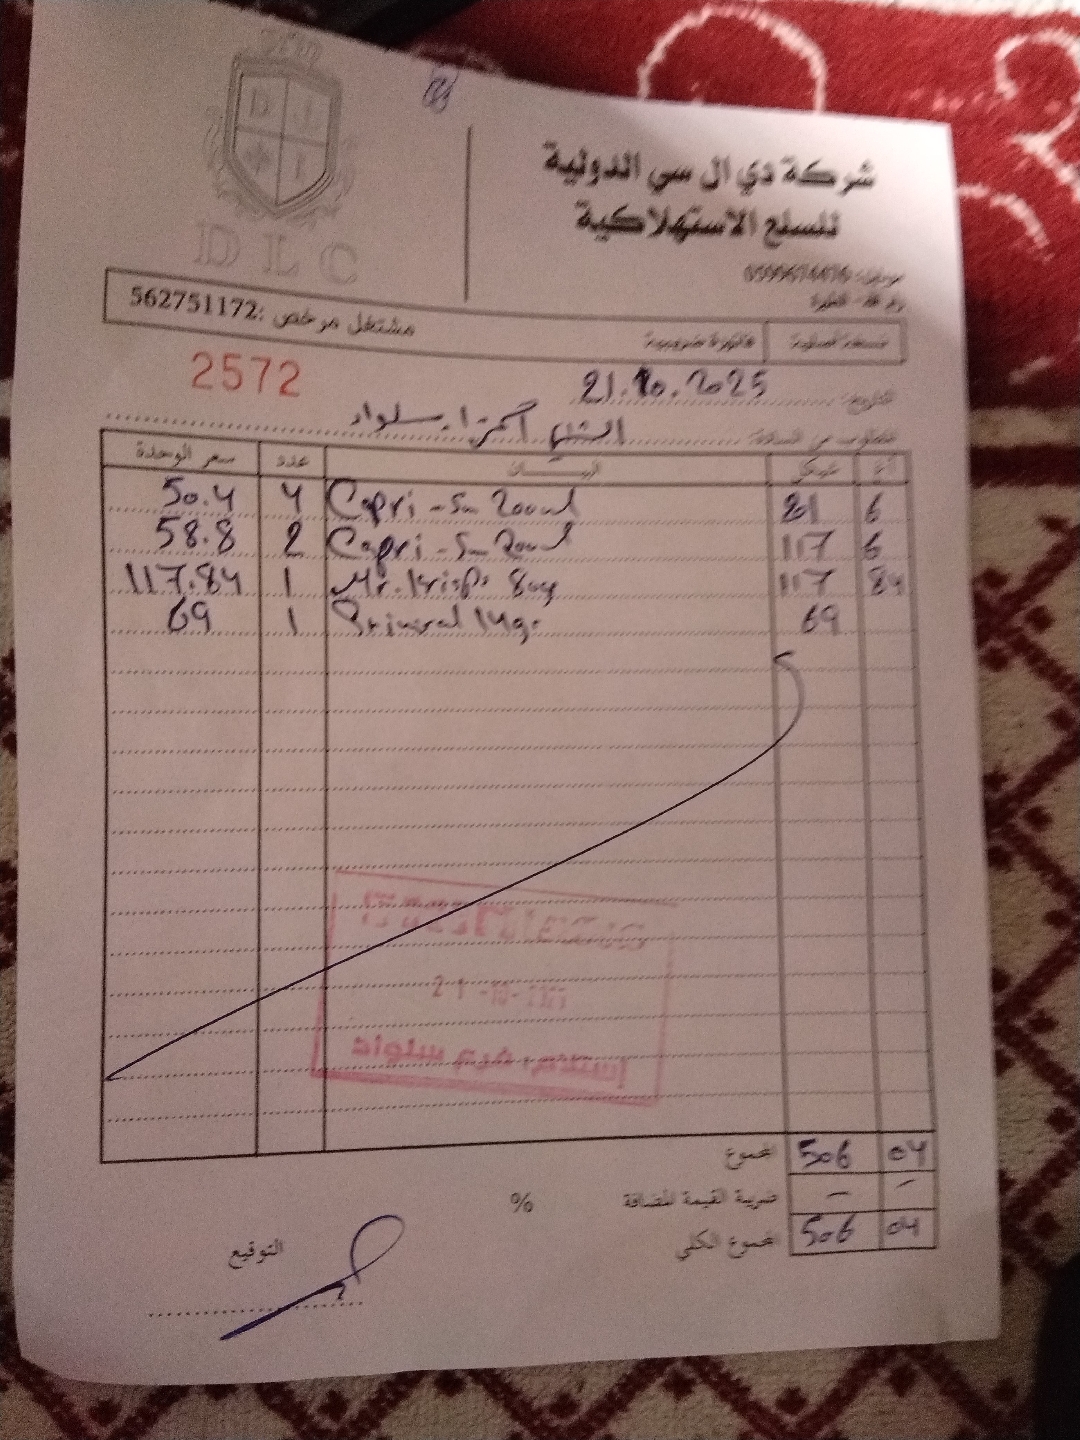 شركة دي ال سي الدولية
للسلع الاستهلاكية
D L C
موبايل: 0599674476
رام الله - الطيرة
نسخة أصلية فاتورة ضريبية مشتغل مرخص: 562751172
2572
التاريخ: 21.10.2025
المطلوب من السادة: سلواد
أغ شيكل البيــــان عدد سعر الوحدة
50.4 4 Capri-Sun 200ml 6
58.8 2 Capri-Sun 200ml 117 6
117.84 1 Mr. Krisps 80g 117 84
69 1 14g 69
21-10-
سلواد
المجموع 506 04
ضريبة القيمة المضافة % — —
المجموع الكلي 506 04
التوقيع